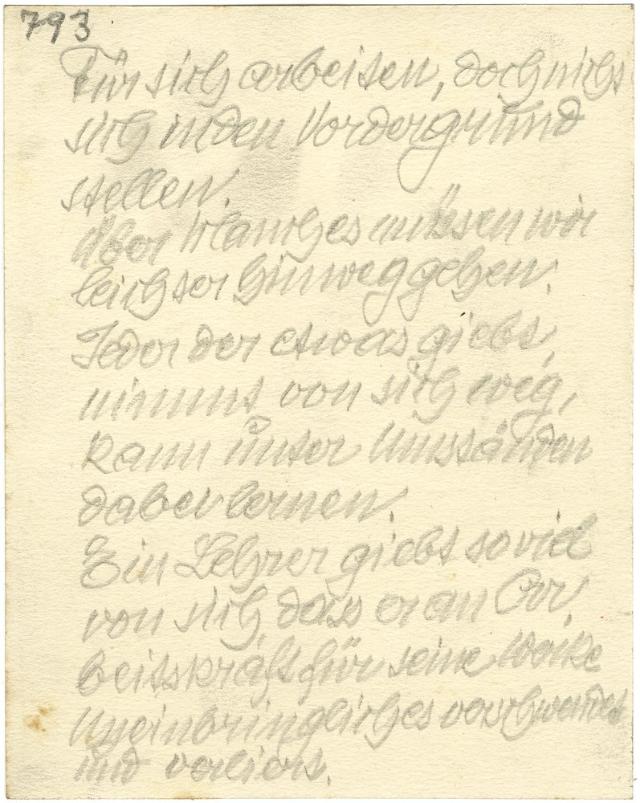 793
Für sich arbeiten, doch nicht
sich in den Vordergrund
stellen.
Über Manches müssen wir
leichter hinweggehen.
Jeder der etwas giebt,
nimmt von sich weg,
kann unter Umständen
dabei lernen.
Ein Lehrer giebt soviel
von sich, dass er an Ar,
beitskraft für seine Werke
Uneinbringliches verschwendet
und verliert.